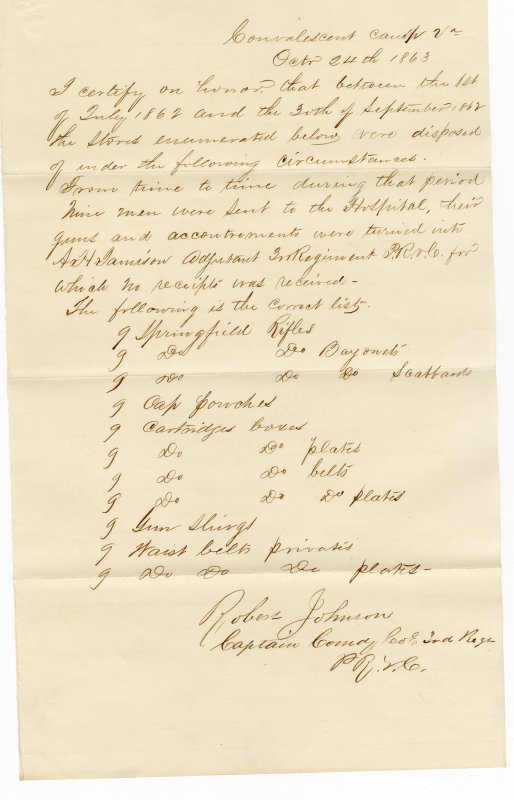 Convalescent Camp Va
Octr 24th 1863
I certify on honor that between the 1st
of July 1862 and the 30th of September 1862
the stores enumerated below were disposed
of under the following circumstances.
From time to time during that period
Nine men were sent to the Hospital, their
guns and accoutrements were turned into
A H Jamison Adjutant 3rd Regiment P.R.V.C. for
which no receipts was received -
The following is the correct list.
9 Springfield Rifles
9 Do Do Bayonets
9 Do Do Do Scabbards
9 Cap pouches
9 Cartridges boxes
9 Do Do plates
9 Do Do belts
9 Do Do Do plates
9 Gun Slings
9 Waist belts privates
9 Do Do Do plates -
Robert Johnson
Captain Comdg Co E 3rd Regt
P R.V.C.